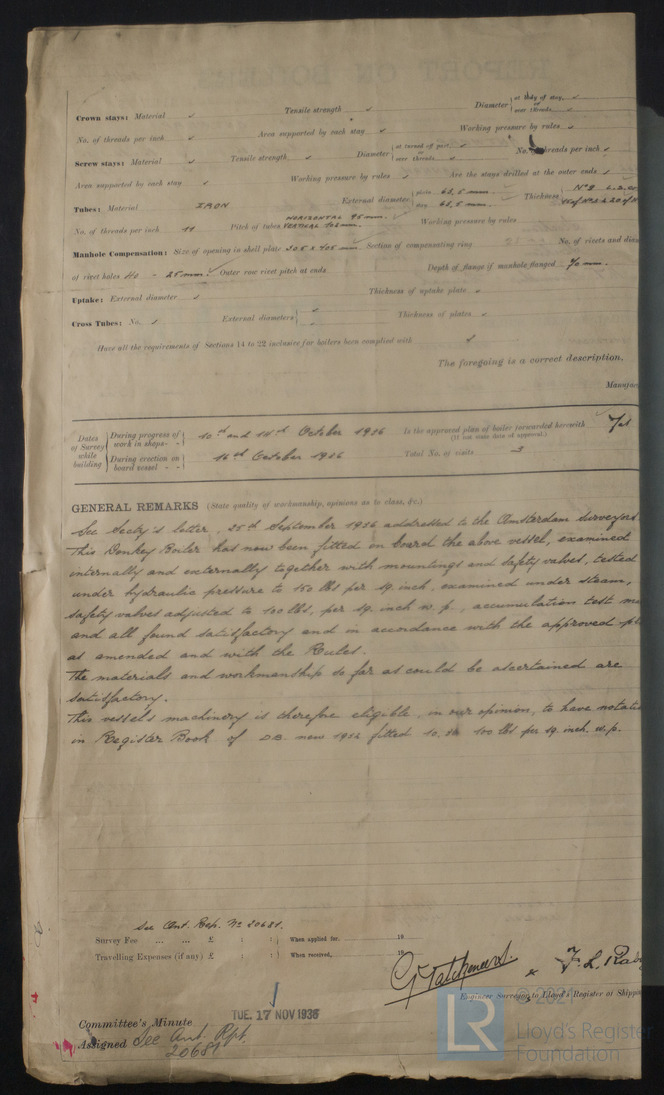 Crown stays: Material ✓ Tensile strength ✓ Diameter at body of stay, ✓ or over threads ✓
No. of threads per inch ✓ Area supported by each stay ✓ Working pressure by rules ✓
Screw stays: Material ✓ Tensile strength ✓ Diameter at turned off part, ✓ or over threads ✓ No. of threads per inch ✓
Area supported by each stay ✓ Working pressure by rules ✓ Are the stays drilled at the outer ends ✓
Tubes: Material IRON External diameter plain 63,5 mm stay 63,5 mm Thickness
No. of threads per inch 11 Pitch of tubes HORIZONTAL 95 mm. VERTICAL 102 mm. Working pressure by rules
Manhole Compensation: Size of opening in shell plate 305 x 405 mm Section of compensating ring No. of rivets and
of rivet holes 40 - 25 mm ✓ Outer row rivet pitch at ends Depth of flange if manhole flanged 70 mm.
Uptake: External diameter ✓ Thickness of uptake plate ✓
Cross Tubes: No. ✓ External diameters ✓ Thickness of plates ✓
Have all the requirements of Sections 14 to 22 inclusive for boilers been complied with
The foregoing is a correct description,
Dates of Survey while building During progress of work in shops - - 10th and 14th October 1936 Is the approved plan of boiler forwarded herewith Yes
(If not state date of approval.)
During erection on board vessel - - 16th October 1936 Total No. of visits 3
GENERAL REMARKS (State quality of workmanship, opinions as to class, &c.)
See Secty's letter, 25th September 1936 addressed to the Amsterdam Surveyors.
This Donkey Boiler has now been fitted on board the above vessel, examined
internally and externally together with mountings and safety valves, tested
under hydraulic pressure to 150 lbs per sq. inch, examined under steam,
safety valves adjusted to 100 lbs, per sq. inch w.p., accumulation test
and all found satisfactory and in accordance with the approved
as amended and with the Rules.
The materials and workmanship so far as could be ascertained are
satisfactory.
This vessel's machinery is therefore eligible, in our opinion, to have
in Register Book of D.B. new 1936 fitted 10.36 100 lbs per sq. inch. w.p.
See Ant. Rep. No 20681.
Survey Fee ... ... £ : : When applied for, 19
Travelling Expenses (if any) £ : : When received, 19
F. L.
Engineer Surveyor to Lloyd's Register of
Committee's Minute TUE. 17 NOV 1936
Assigned See Ant. Rpt.
20681
© 2021
LR Lloyd's Register
Foundation